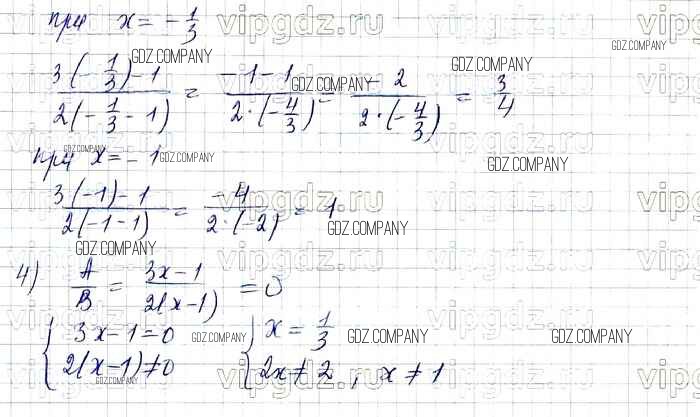 при x = - 1/3
(3(-1/3)-1)/(2(-1/3-1)) = (-1-1)/(2·(-4/3)) = (-2)/(2·(-4/3)) = 3/4
при x = -1
(3(-1)-1)/(2(-1-1)) = (-4)/(2·(-2)) = 1
4) A/B = (3x-1)/(2(x-1)) = 0
{ 3x-1=0 { x = 1/3
{ 2(x-1)≠0 { 2x≠2, x≠1
vipgdz.ru
GDZ.COMPANY